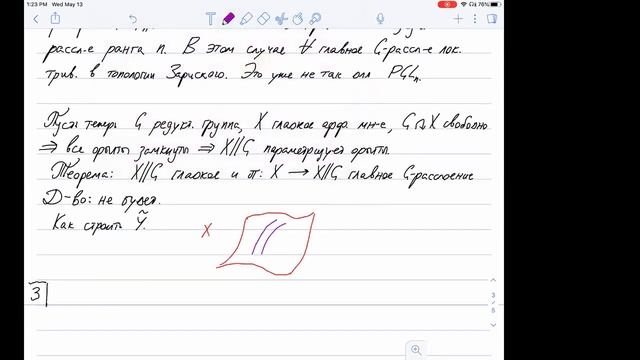 1:23 PM Wed May 13
76%
рассл-е ранга n. В этом случае ∀ главное G-рассл-е лок.
трив. в топологии Зариского. Это уже не так для PGLₙ.
Пусть теперь G редукт. группа, X гладкое афф. мн-е, G ↷ X свободно
⇒ все орбиты замкнуты ⇒ X//G параметризует орбиты.
Теорема: X//G гладкое и π: X → X//G главное G-расслоение
Д-во: не будет.
Как строить Ỹ.
X
3
3
5